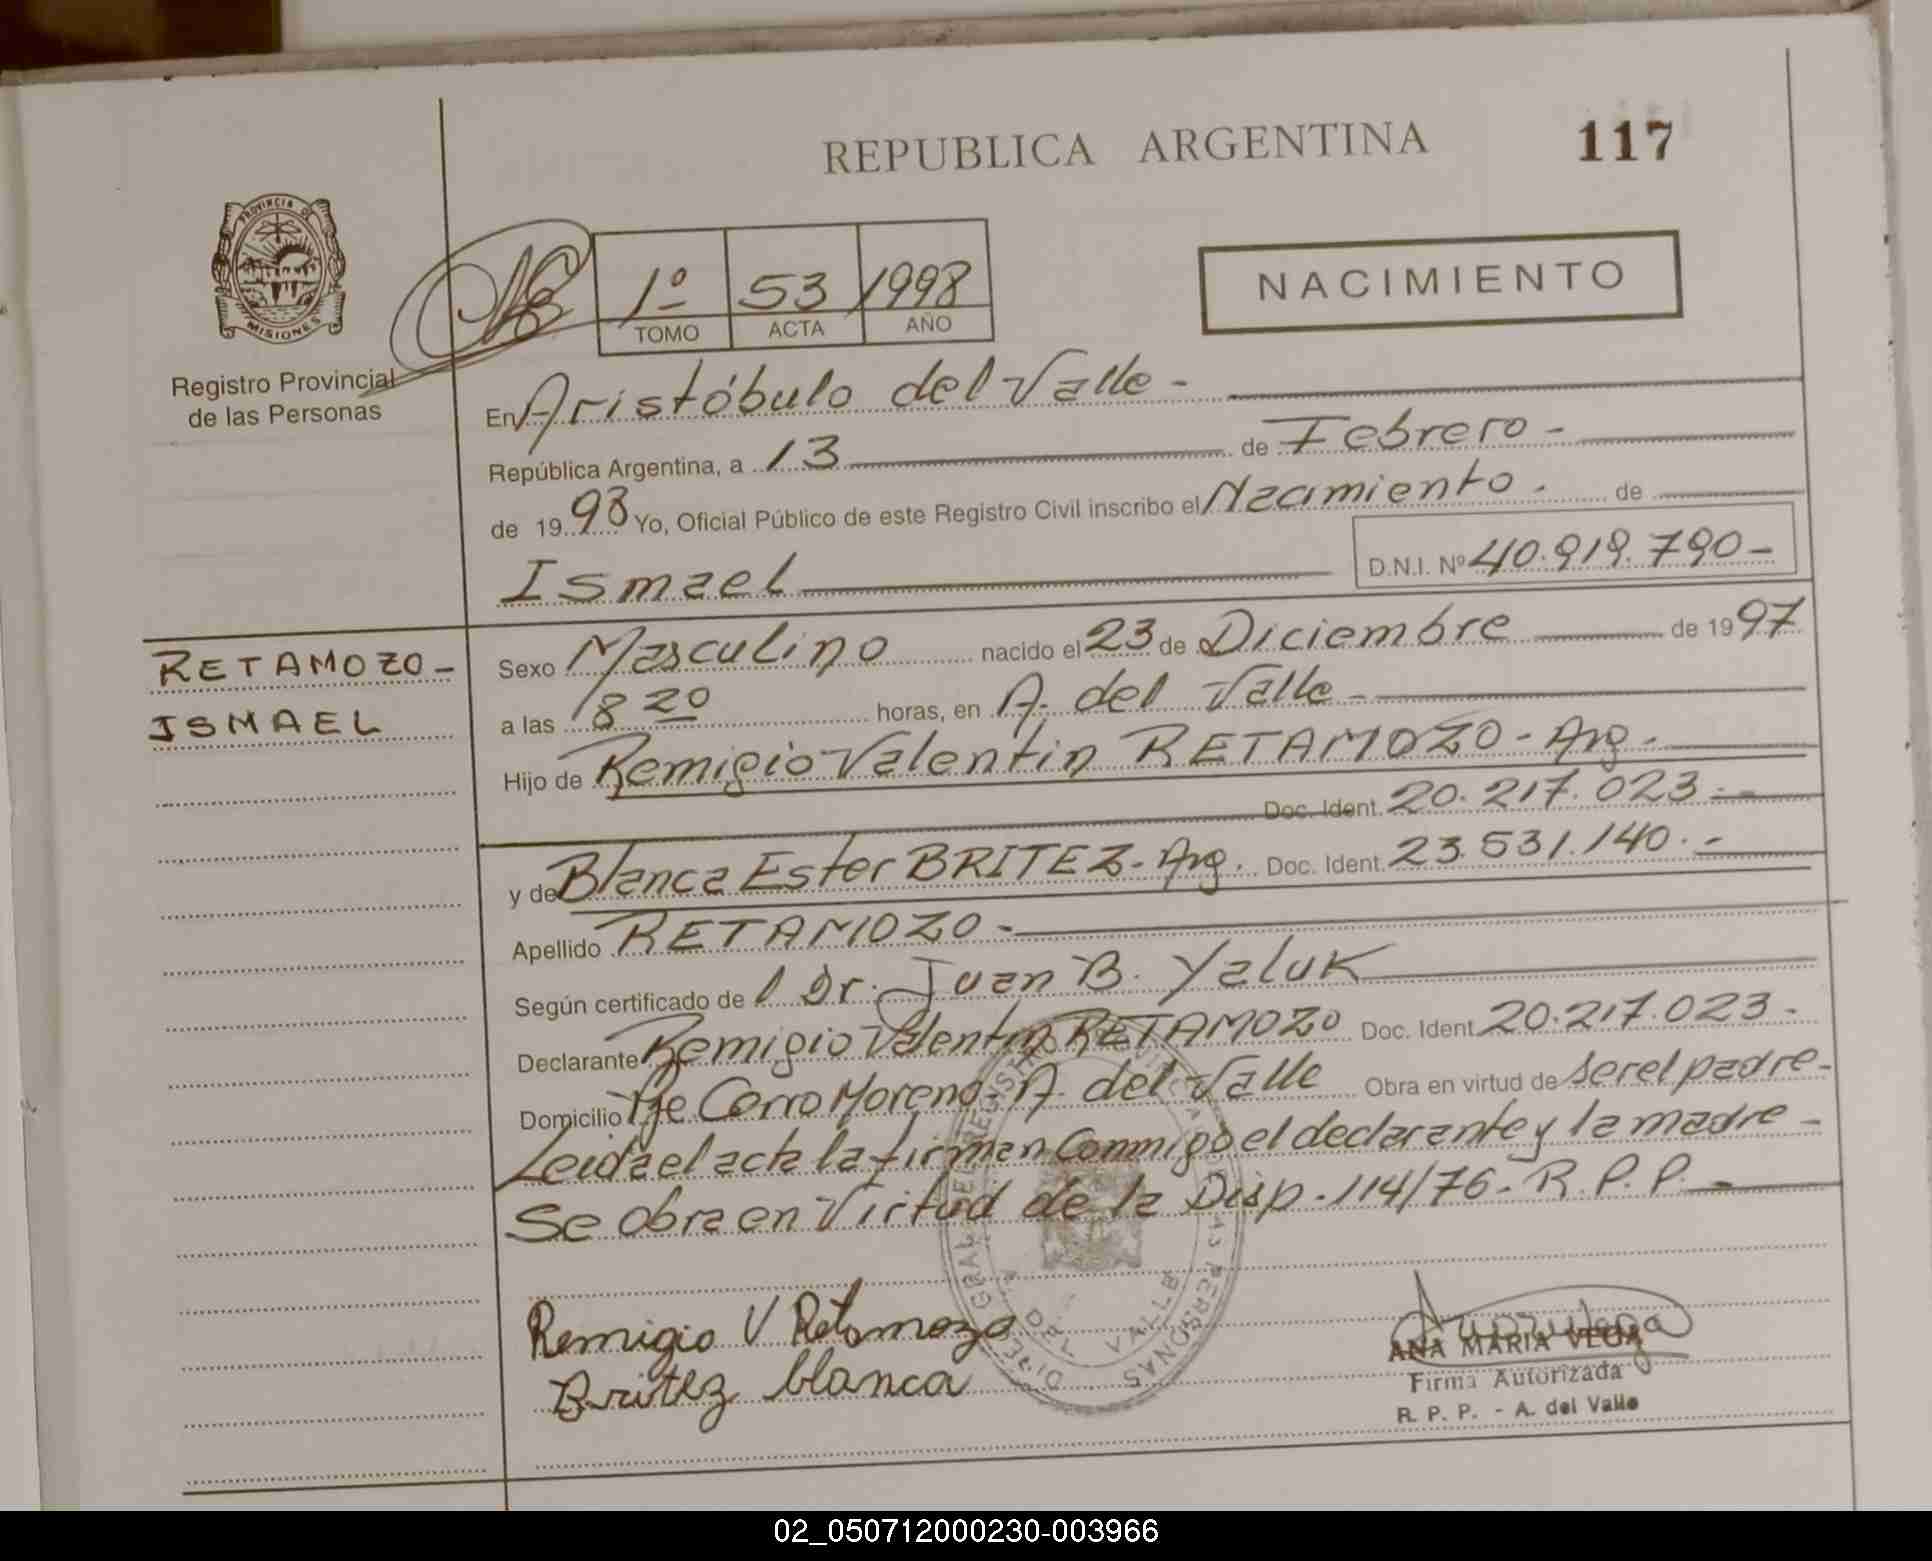 REPUBLICA ARGENTINA 117
PROVINCIA DE MISIONES
Registro Provincial
de las Personas
1º 53 1998
TOMO ACTA AÑO
NACIMIENTO
En Aristóbulo del Valle -
República Argentina, a 13 de Febrero -
de 1998 Yo, Oficial Público de este Registro Civil inscribo el Nacimiento. de
Ismael D.N.I. Nº 40.919.790-
RETAMOZO-
ISMAEL
Sexo Masculino nacido el 23 de Diciembre de 1997
a las 8 20 horas, en A. del Valle -
Hijo de Remigio Valentin RETAMOZO - Arg -
Doc. Ident. 20.217.023 -
y de Blanca Ester BRITEZ - Arg. Doc. Ident. 23.531.140. -
Apellido RETAMOZO -
Según certificado de l Dr. Juan B. Yaluk
Declarante Remigio Valentin RETAMOZO Doc. Ident 20.217.023 -
Domicilio Pje Cerro Moreno - A. del Valle Obra en virtud de ser el padre -
Leida el acta la firman Conmigo el declarante y la madre -
Se obra en Virtud de la Disp. 114/76 - R. P. P. -
Remigio V Retamozo
Britez blanca
ANA MARIA VEGA
Firma Autorizada
R. P. P. - A. del Valle
02_050712000230-003966